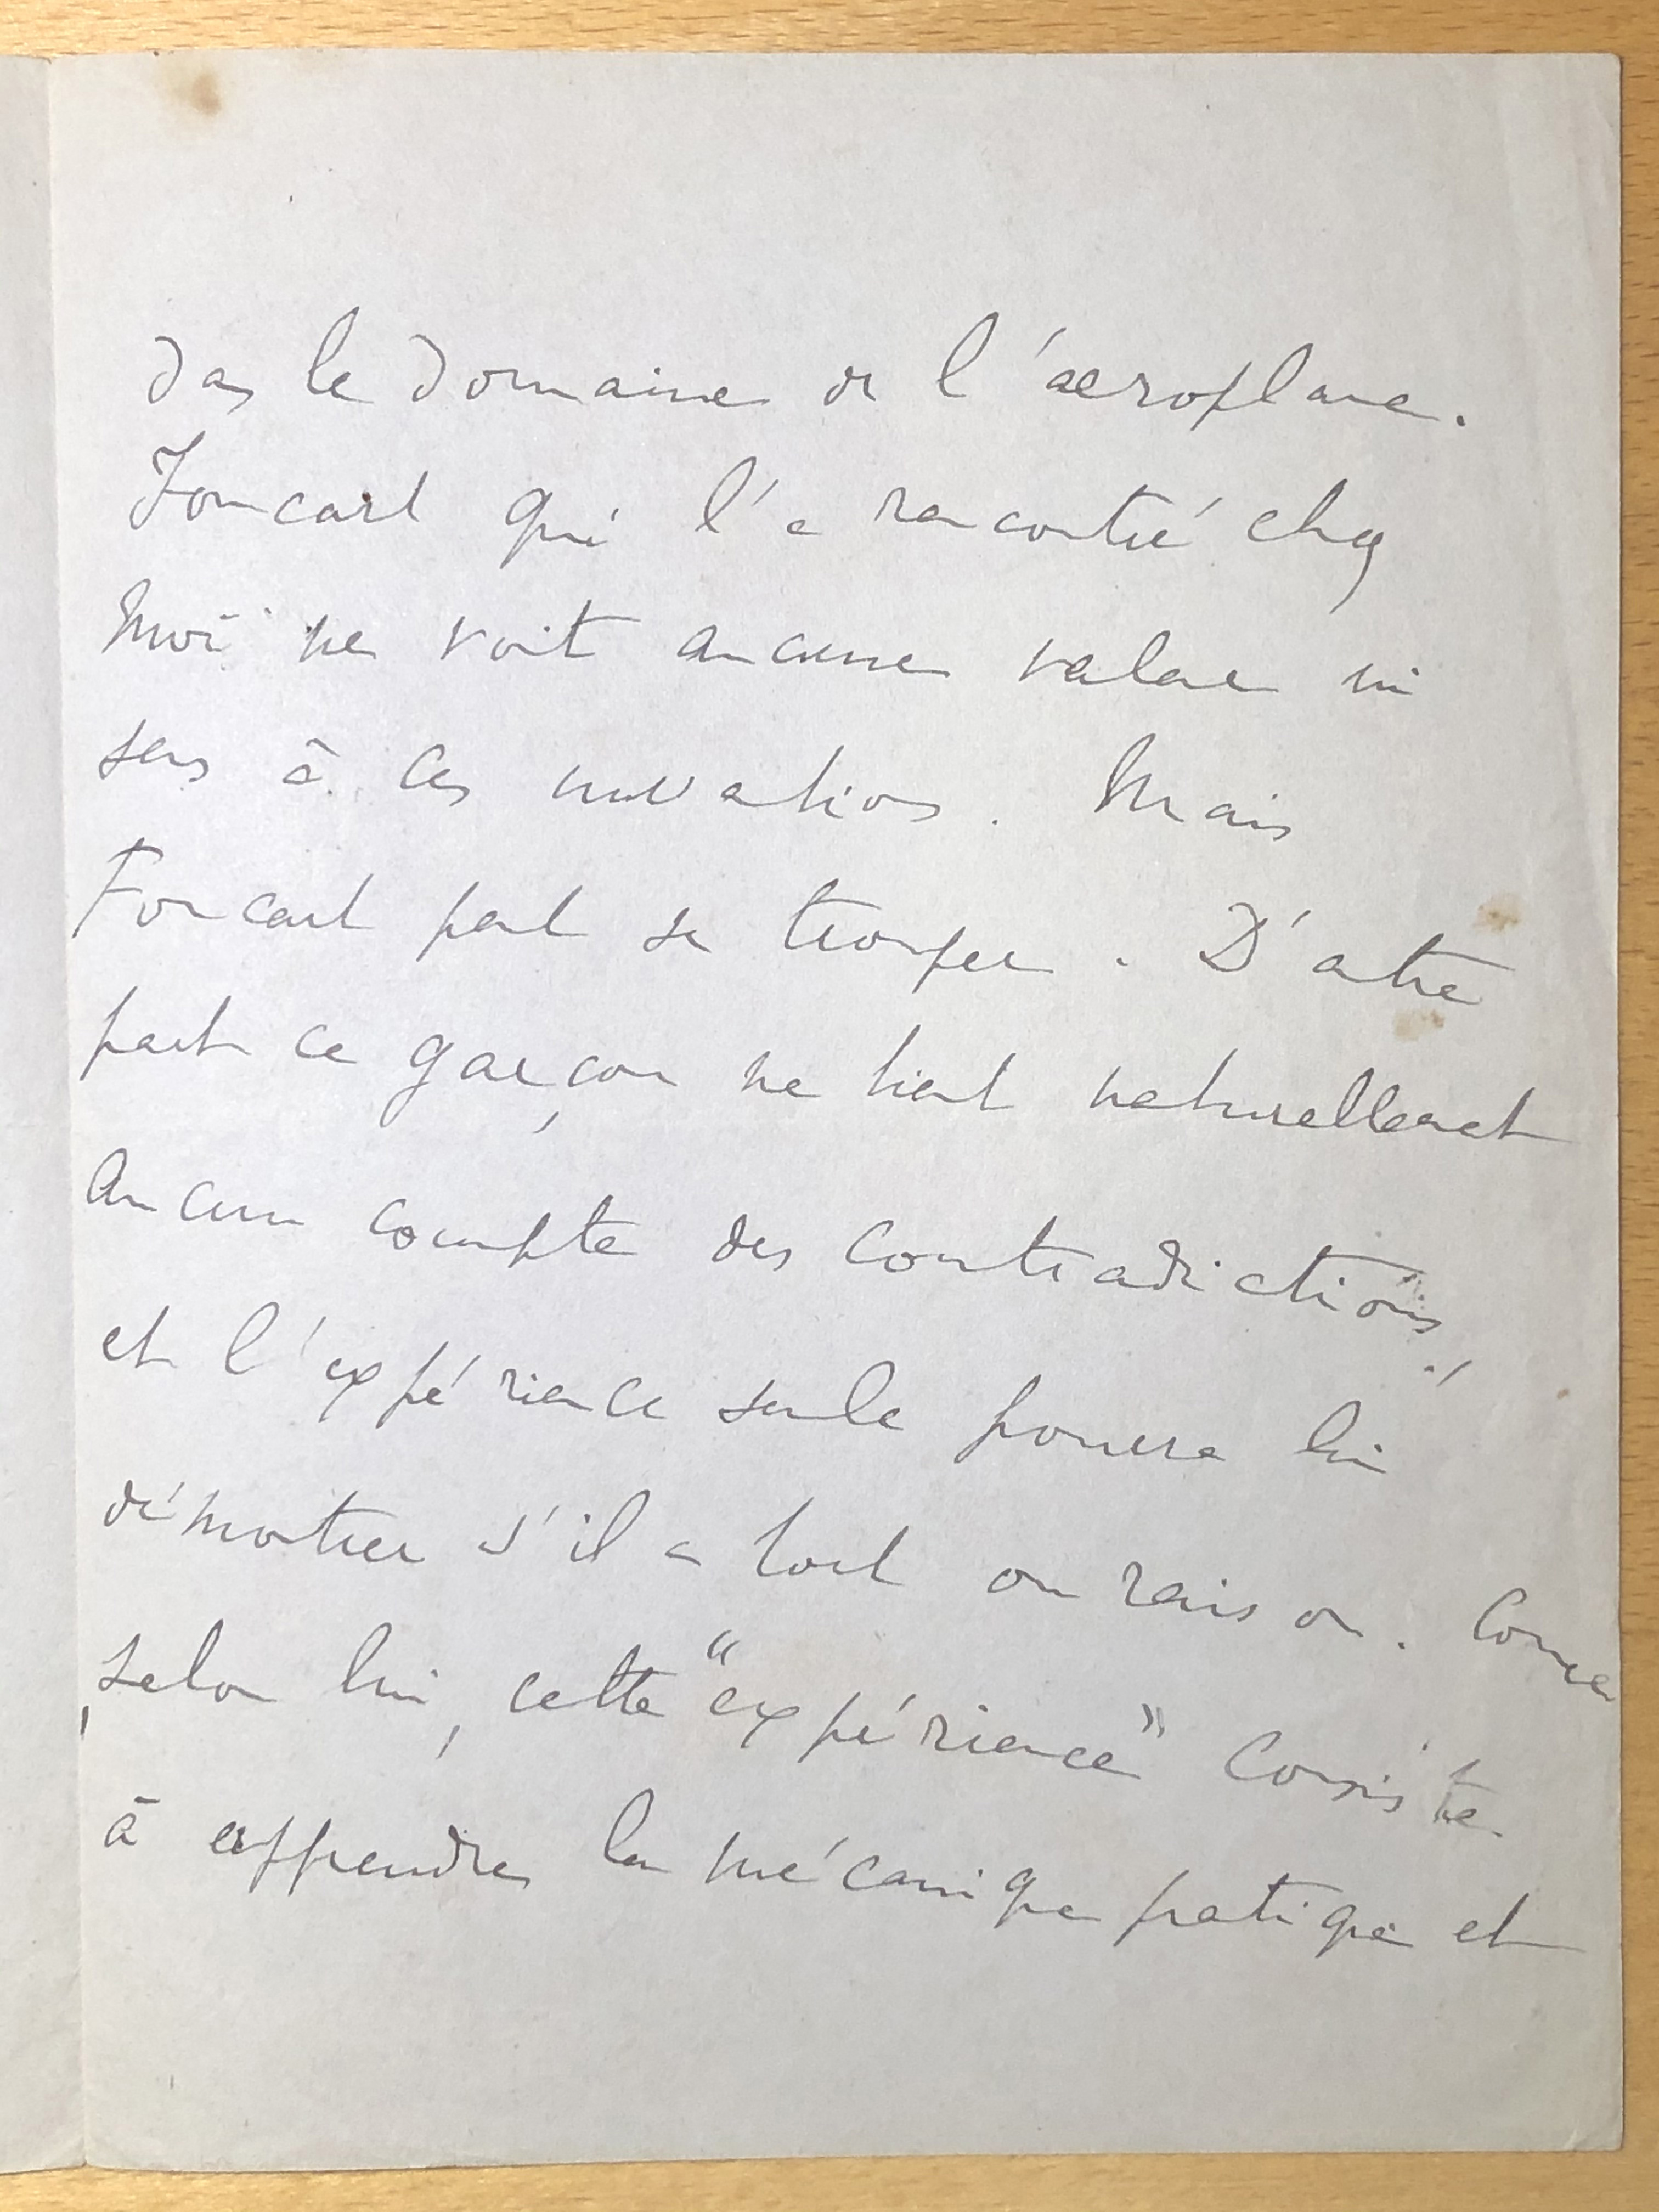 dans le domaine de l'aéroplane.
Foucart qui l'a rencontré chez
moi ne voit aucune valeur ni
sens à ces innovations. Mais
Foucart peut se tromper. D'autre
part ce garçon ne tient naturellement
aucun compte des contradictions,
et l'expérience seule pourra lui
démontrer s'il a tort ou raison. Comme
selon lui, cette "expérience" consiste
à apprendre la mécanique pratique et